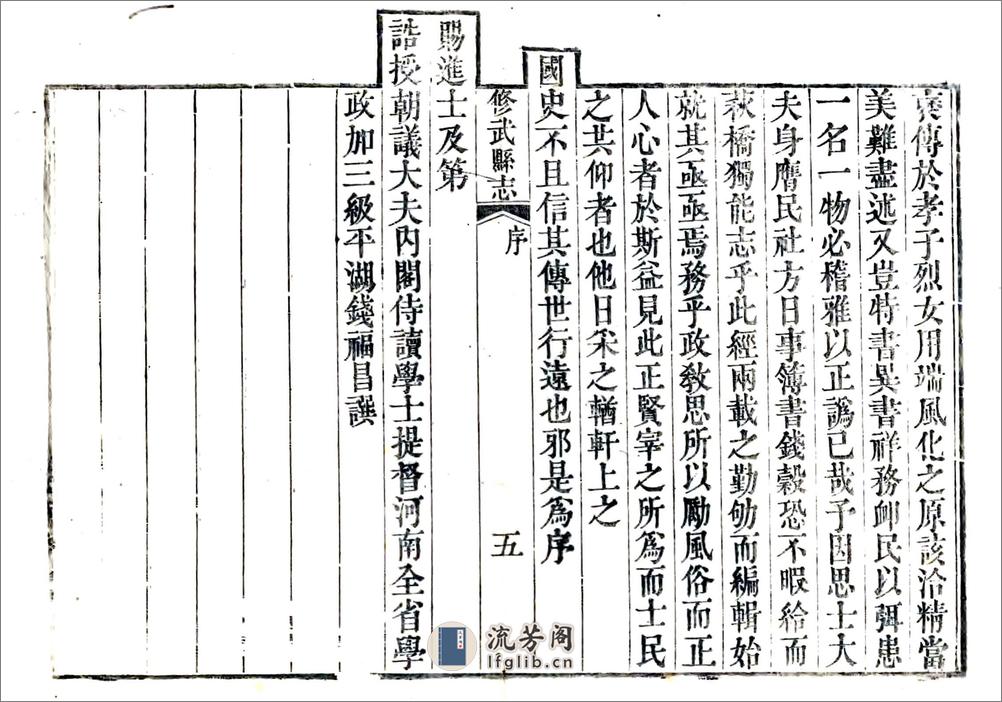 傳於孝子烈女用端風化之原該洽精當
美難盡述又豈特書異書祥務卹民以弭患
一名一物必稽雅以正譌已哉予因思士大
夫身膺民社方日事簿書錢穀恐不暇給而
萩橋獨能志乎此經兩載之勤劬而編輯始
就其亟亟焉務乎政教思所以勵風俗而正
人心者於斯益見此正賢宰之所為而士民
之共仰者也他日采之輶軒上之
國史不且信其傳世行遠也邪是為序
修武縣志 序 五
賜進士及第
誥授朝議大夫內閣侍讀學士提督河南全省學
政加三級平湖錢福昌譔
流芳阁
lfglib.cn